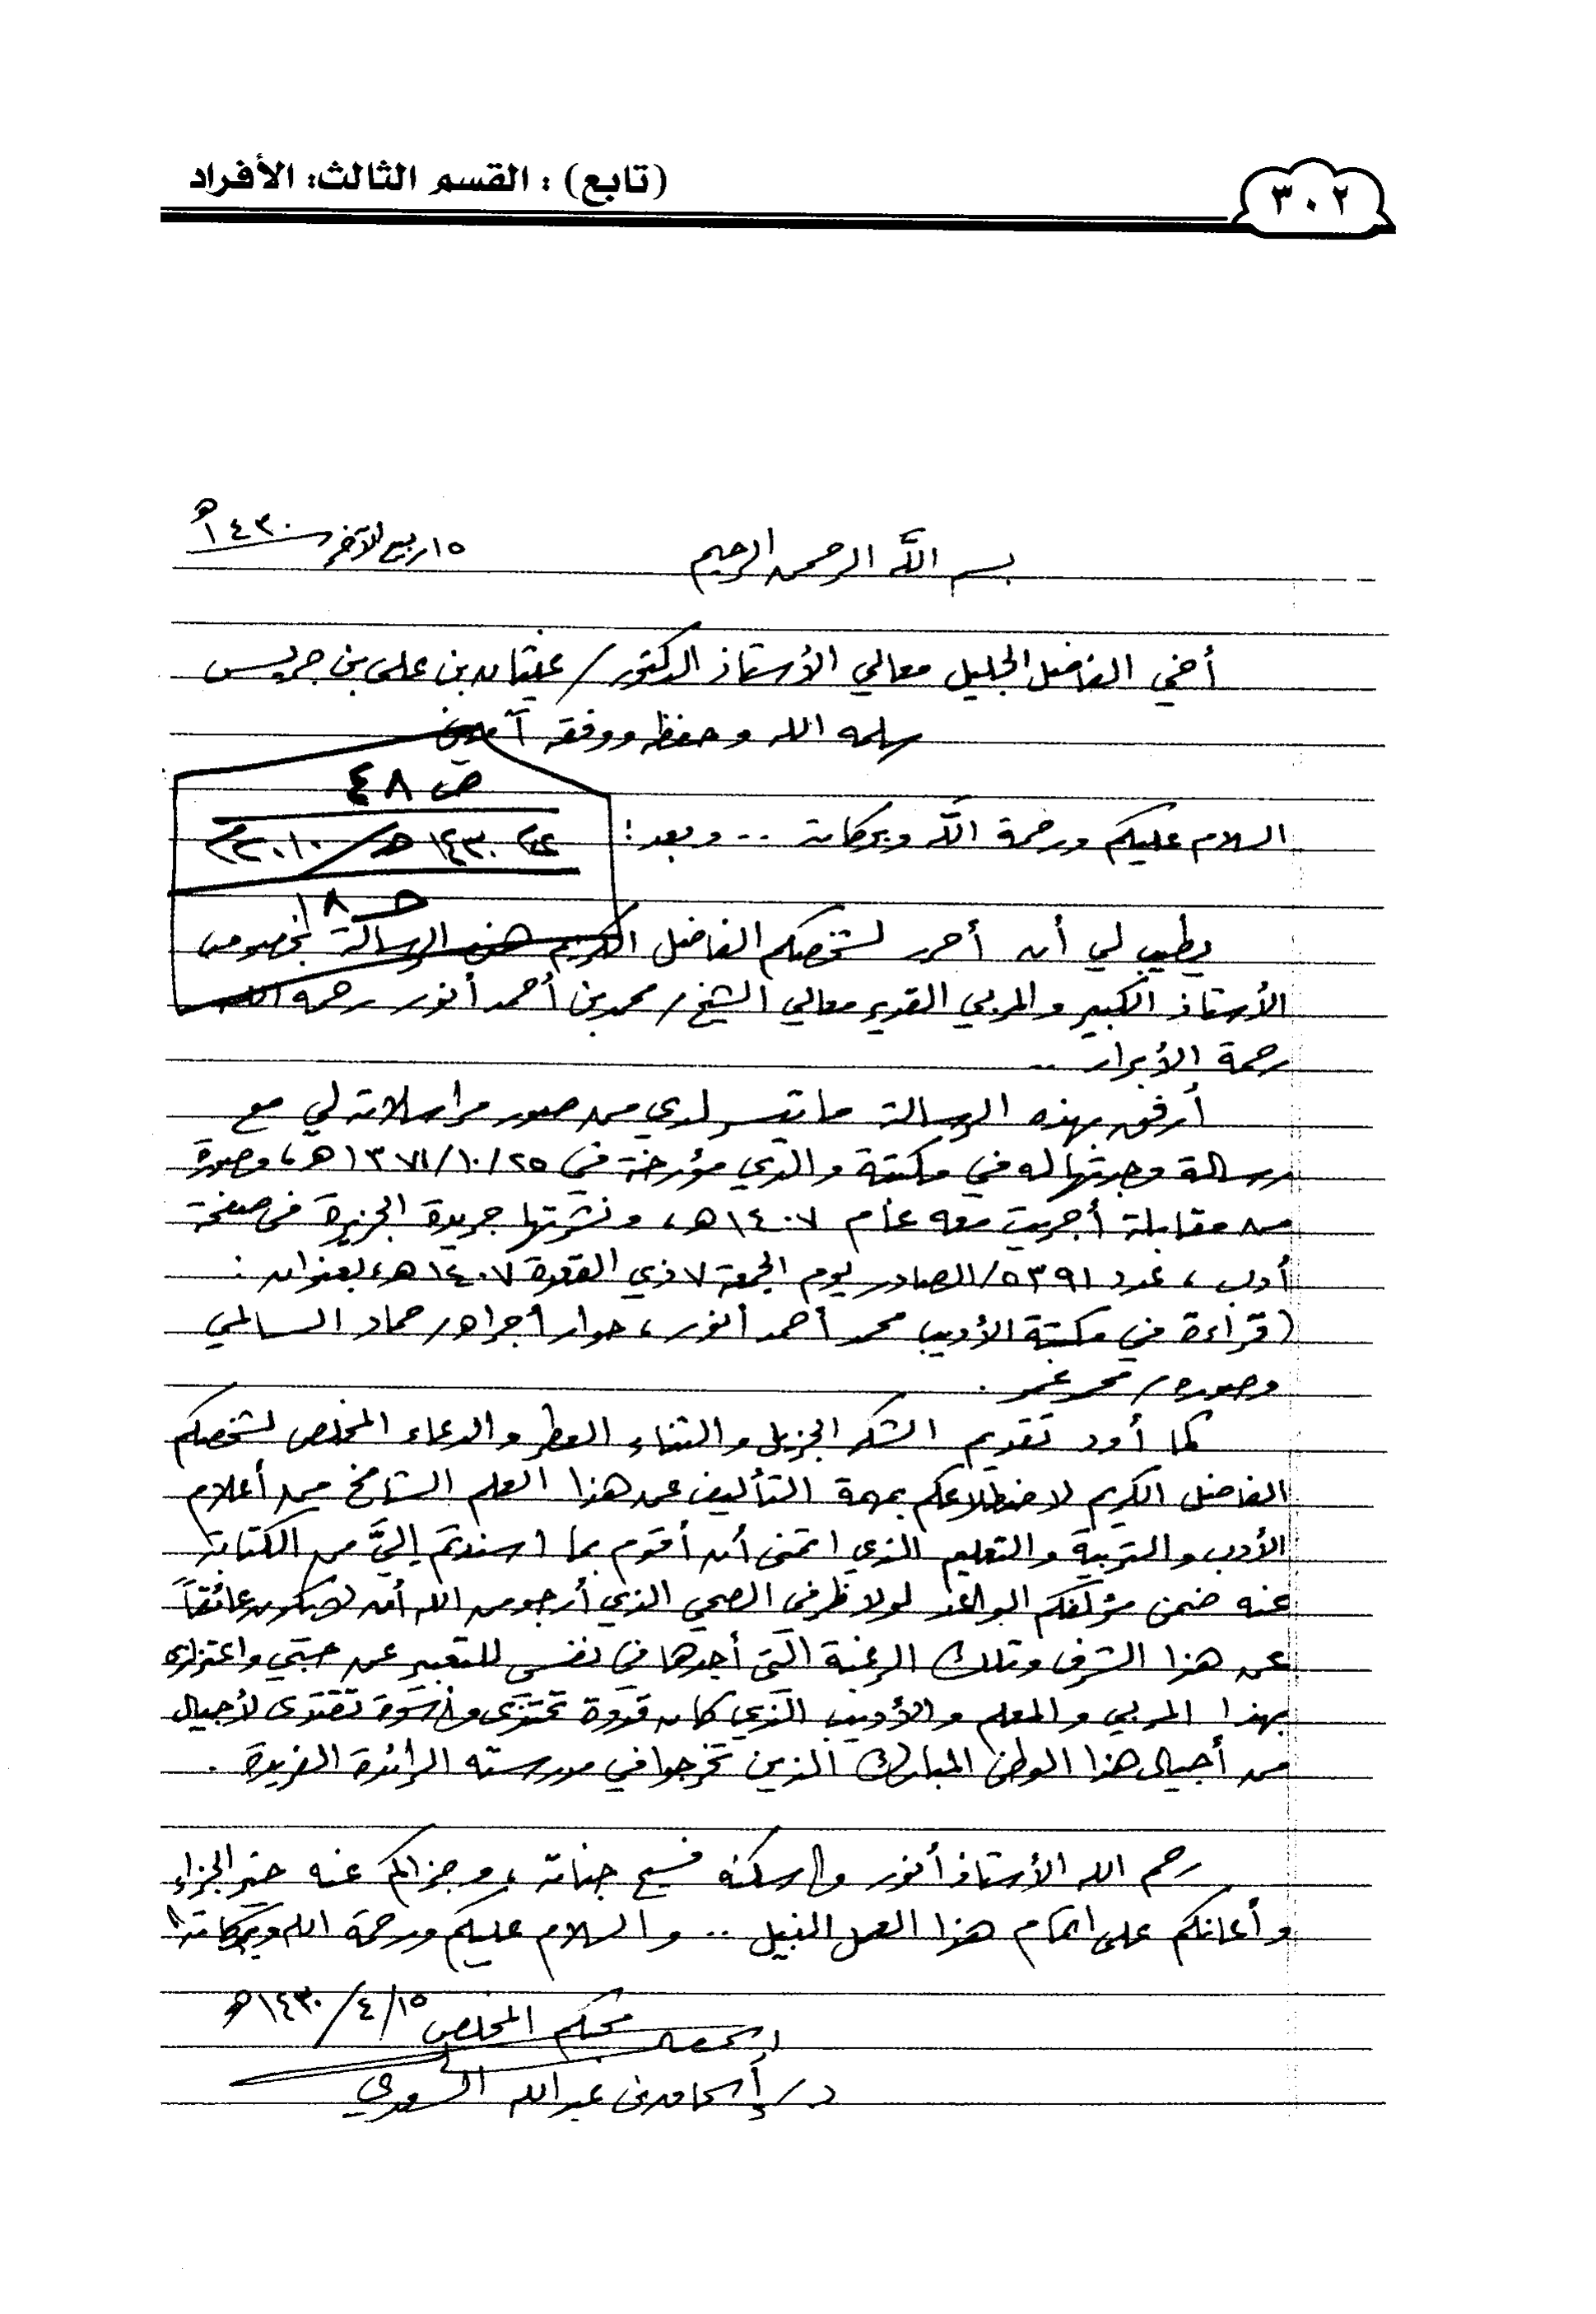 ٣٠٢
(تابع) : القسم الثالث: الأفراد
١٥ ربيع الآخر ١٤٣٠هـ
بسم الله الرحمن الرحيم
أخي الفاضل الجليل معالي الأستاذ الدكتور / غيثان بن علي بن جريس
سلمه الله وحفظه ووفقه آمين
ص ٤٨
١٤٣٠هـ / ٢٠١٠م
حـ ١٨
السلام عليكم ورحمة الله وبركاته .. وبعد :
يطيب لي أن أحرر لشخصكم الفاضل الكريم هذه الرسالة بخصوص
الأستاذ الكبير والمربي القدير معالي الشيخ / محمد بن أحمد أنور رحمه الله
رحمة الأبرار ..
أرفق بهذه الرسالة ما تيسر لدي من صور مراسلاته لي مع
رسالة وجدتها له في مكتبة والدي مؤرخة في ٢٥/١٠/١٣٧١هـ، وصورة
من مقابلة أجريت معه عام ١٤٠٧هـ، ونشرتها جريدة الجزيرة في صفحة
أدب ، عدد ٥٣٩١/ الصادر يوم الجمعة ٧ ذي القعدة ١٤٠٧هـ، بعنوان :
(قراءة في مكتبة الأديب محمد أحمد أنور، حوار أجراه / حماد السالمي
وصوره / محمد عمر .
كما أود تقديم الشكر الجزيل والثناء العطر والدعاء المخلص لشخصكم
الفاضل الكريم لاضطلاعكم بمهمة التأليف عن هذا العلم الشامخ من أعلام
الأدب والتربية والتعليم الذي اتمنى أن أقوم بما اسندتم إليَّ من الكتابة
عنه ضمن مؤلفكم الواعد لولا ظرفي الصحي الذي أرجو من الله أن لا يكون عائقاً
عن هذا الشرف وتلك الرغبة التي أجدها في نفسي للتعبير عن حبي واعتزازي
بهذا المربي والمعلم والأديب الذي كان قدوة تحتذى وأسوة تقتدى لأجيال
من أجيال هذا الوطن المبارك الذين تخرجوا في مدرسته الرائدة الفريدة .
رحم الله الأستاذ أنور وأسكنه فسيح جناته ، وجزاكم عنه خير الجزاء
وأعانكم على اتمام هذا العمل النبيل .. والسلام عليكم ورحمة الله وبركاته،،
محبكم المخلص ١٥/٤/١٤٣٠هـ
د / إسحاق بن عبدالله السعدي